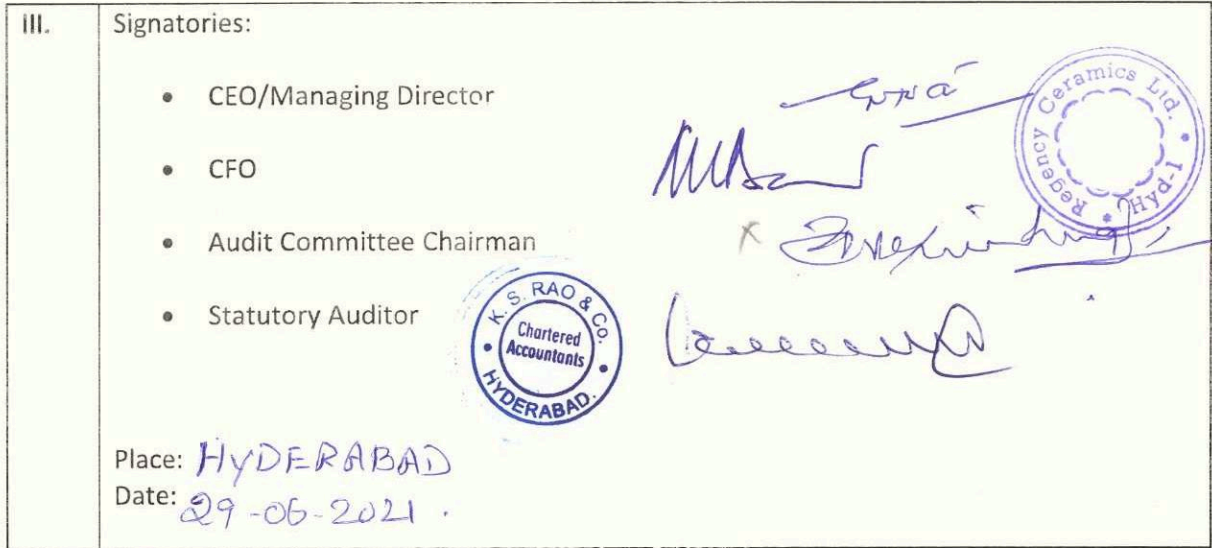 III.
Signatories:
• CEO/Managing Director
• CFO
• Audit Committee Chairman
• Statutory Auditor
Regency Ceramics Ltd. * Hyd-1 *
K. S. RAO & Co.
Chartered
Accountants
HYDERABAD.
Place: HYDERABAD
Date: 29-06-2021.